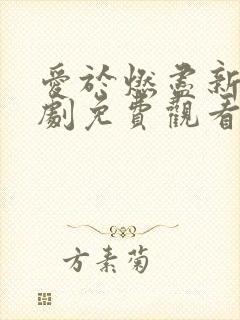 愛於燃盡新
劇免費觀看
方素菊